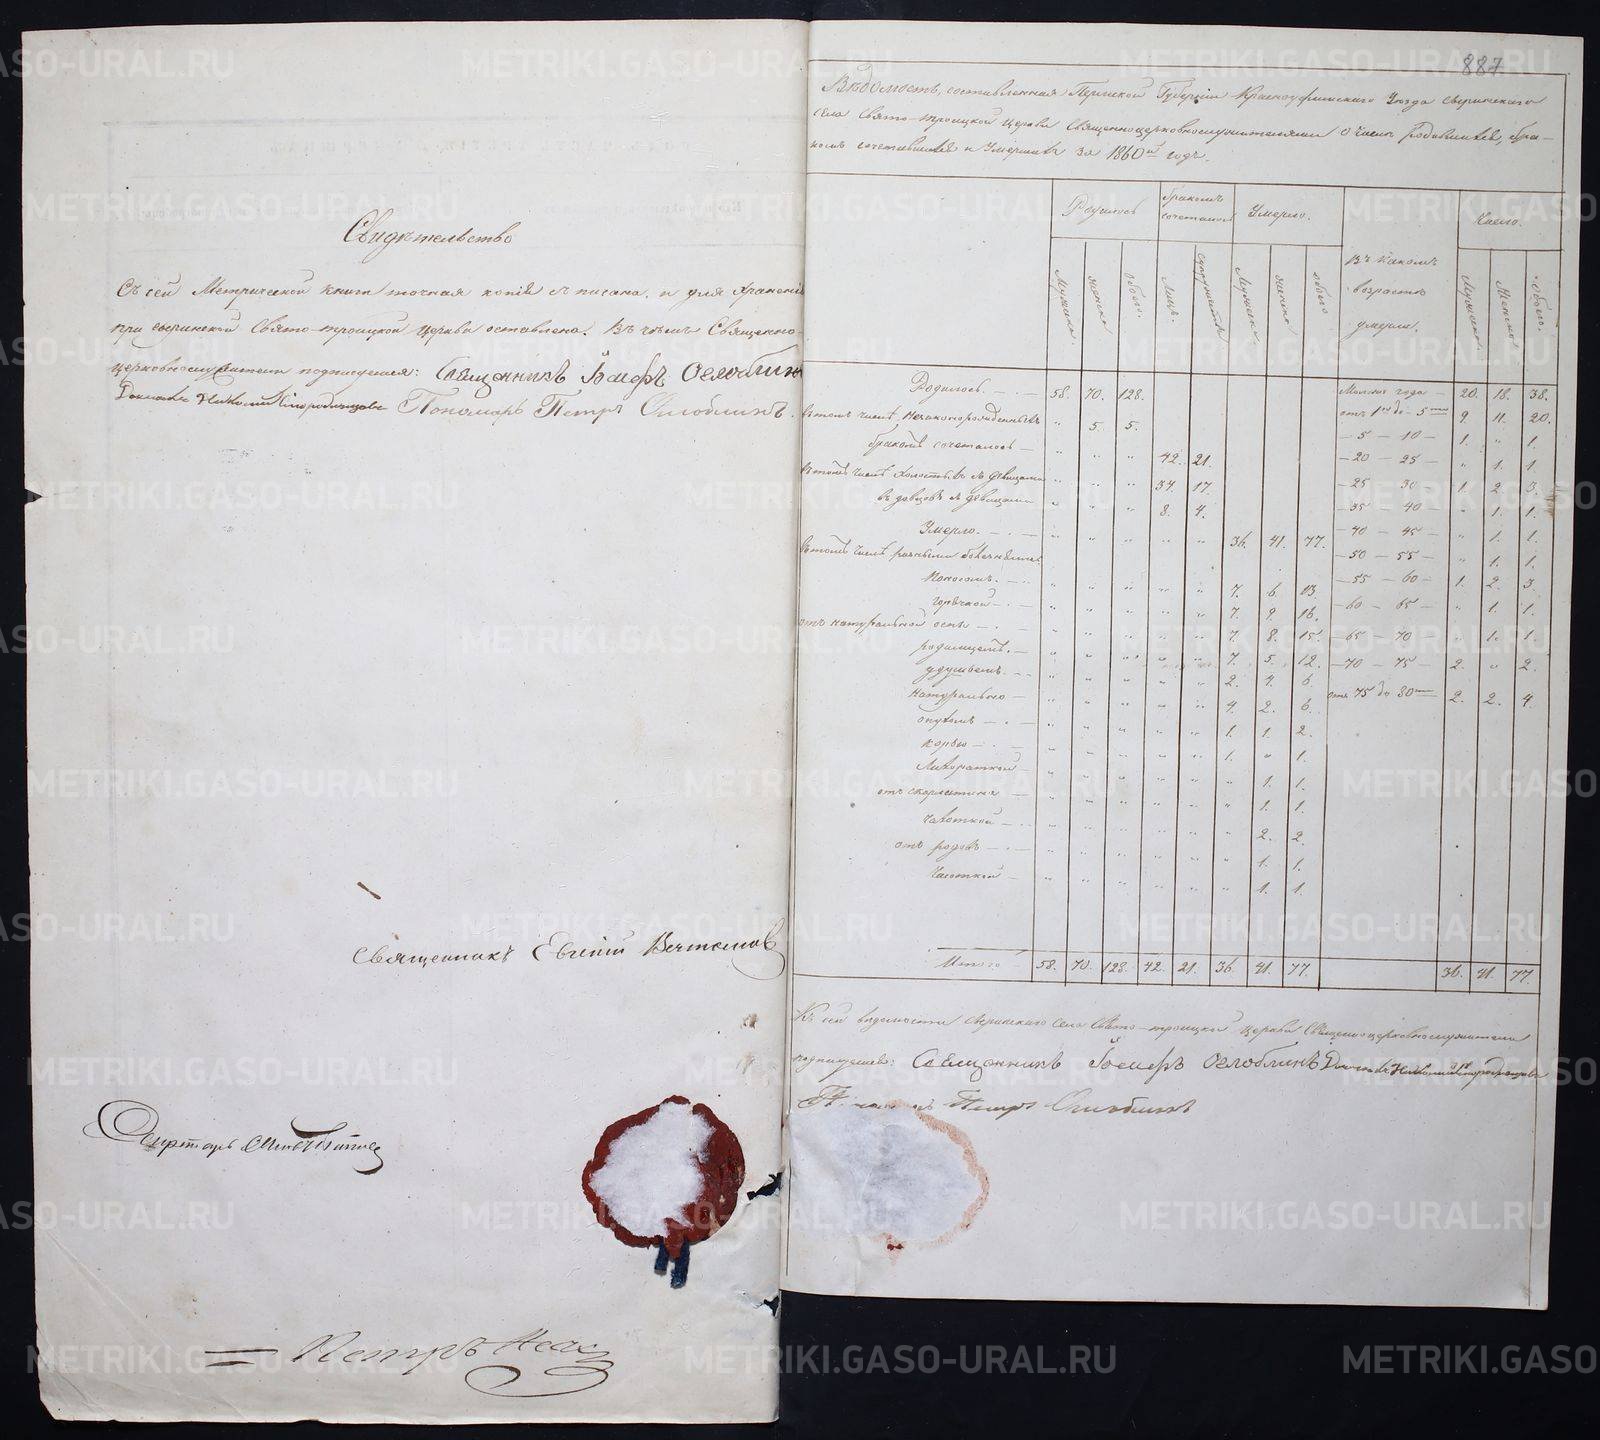 Свидѣтельство
Съ сей Метрической книги точная копія списана, и для храненія
при Сверинской Свято-троицкой церкви оставлена. Въ чемъ Священно-
церковнослужители подписуемся: Священникъ Іосифъ Оглоблинъ
Дьячекъ Николай Пономарь Петръ Оглоблинъ.
Священникъ Евгеній
Секретарь
Петръ
887
Вѣдомость, составленная Пермской Губерніи Красноуфимскаго Уѣзда Сверинскаго
села Свято-троицкой церкви Священноцерковнослужителями о числѣ родившихся, бра-
комъ сочетавшихся и Умершихъ за 1860й годъ.
Родилось Бракомъ сочеталось Умерло. Въ какомъ возрастѣ умерли. Число.
Мужеска женска обоего. Лицъ. супружествъ Мужеск. женска обоего Мужеска Женска Обоего.
Родилось. 58. 70. 128. Менѣе года 20. 18. 38.
Въ томъ числѣ незаконорожденныхъ " 5. 5. отъ 1го до 5ти 9. 11. 20.
бракомъ сочеталось " " " 42. 21. 5 – 10 1. " 1.
Въ томъ числѣ холостыхъ съ дѣвицами " " " 34. 17. 20 – 25 " 1. 1.
вдовцовъ съ дѣвицами " " " 8. 4. 25 – 30 1. 2. 3.
35 – 40 " 1. 1.
Умерло. " " " " " 36. 41. 77. 40 – 45 " 1. 1.
Въ томъ числѣ разными болѣзнями: 50 – 55 " 1. 1.
Поносомъ. " " " " " 7. 6. 13. 55 – 60 1. 2. 3.
горячкой " " " " " 7. 9. 16. 60 – 65 " 1. 1.
отъ натуральной оспы " " " " " 7. 8. 15. 65 – 70 " 1. 1.
родимцемъ. " " " " " 7. 5. 12. 70 – 75 2. " 2.
удушьемъ. " " " " " 2. 4. 6. отъ 75 до 80 2. 2. 4.
Натурально " " " " " 4. 2. 6.
опухолью " " " " " 1. 1. 2.
корью " " " " " 1. " 1.
Лихораткой " " " " " " 1. 1.
отъ скорлатины " " " " " " 1. 1.
чахоткой " " " " " " 2. 2.
отъ родовъ " " " " " " 1. 1.
" " " " " " 1. 1.
Итого 58. 70. 128. 42. 21. 36. 41. 77. 36. 41. 77.
Къ сей вѣдомости Сверинскаго села Свято-троицкой церкви Священноцерковнослужители
подписуемся: Священникъ Іосифъ Оглоблинъ Дьячекъ Николай
Петръ Оглоблинъ
METRIKI.GASO-URAL.RU